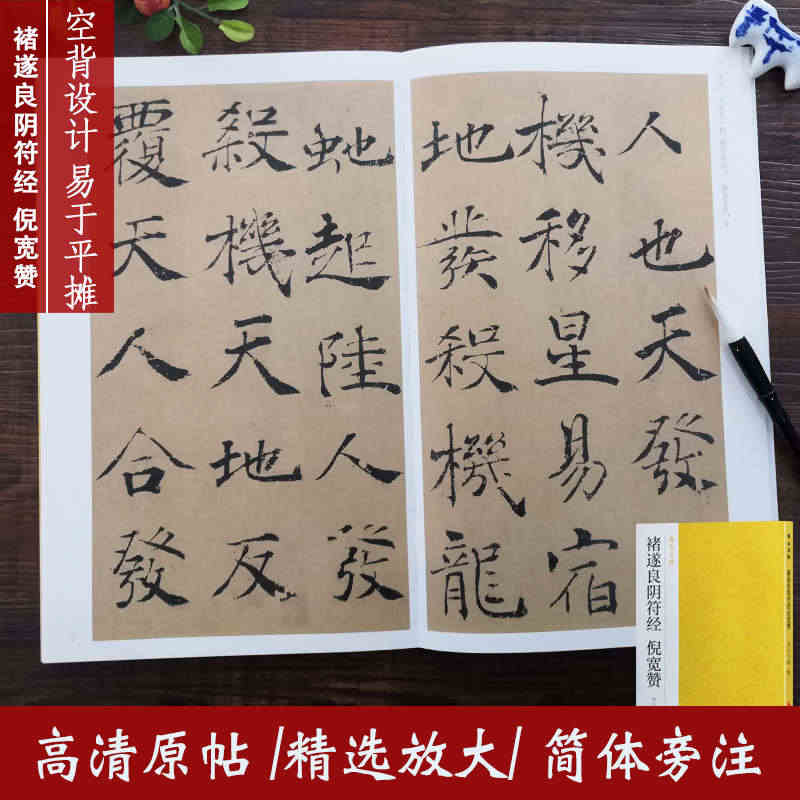 空背设计 易于平摊
褚遂良阴符经 倪宽赞
人也天發
機移星易宿
地發殺機龍
虵起陸人發
殺機天地反
覆天人合發
褚遂良阴符经 倪宽赞
高清原帖 /精选放大/ 简体旁注